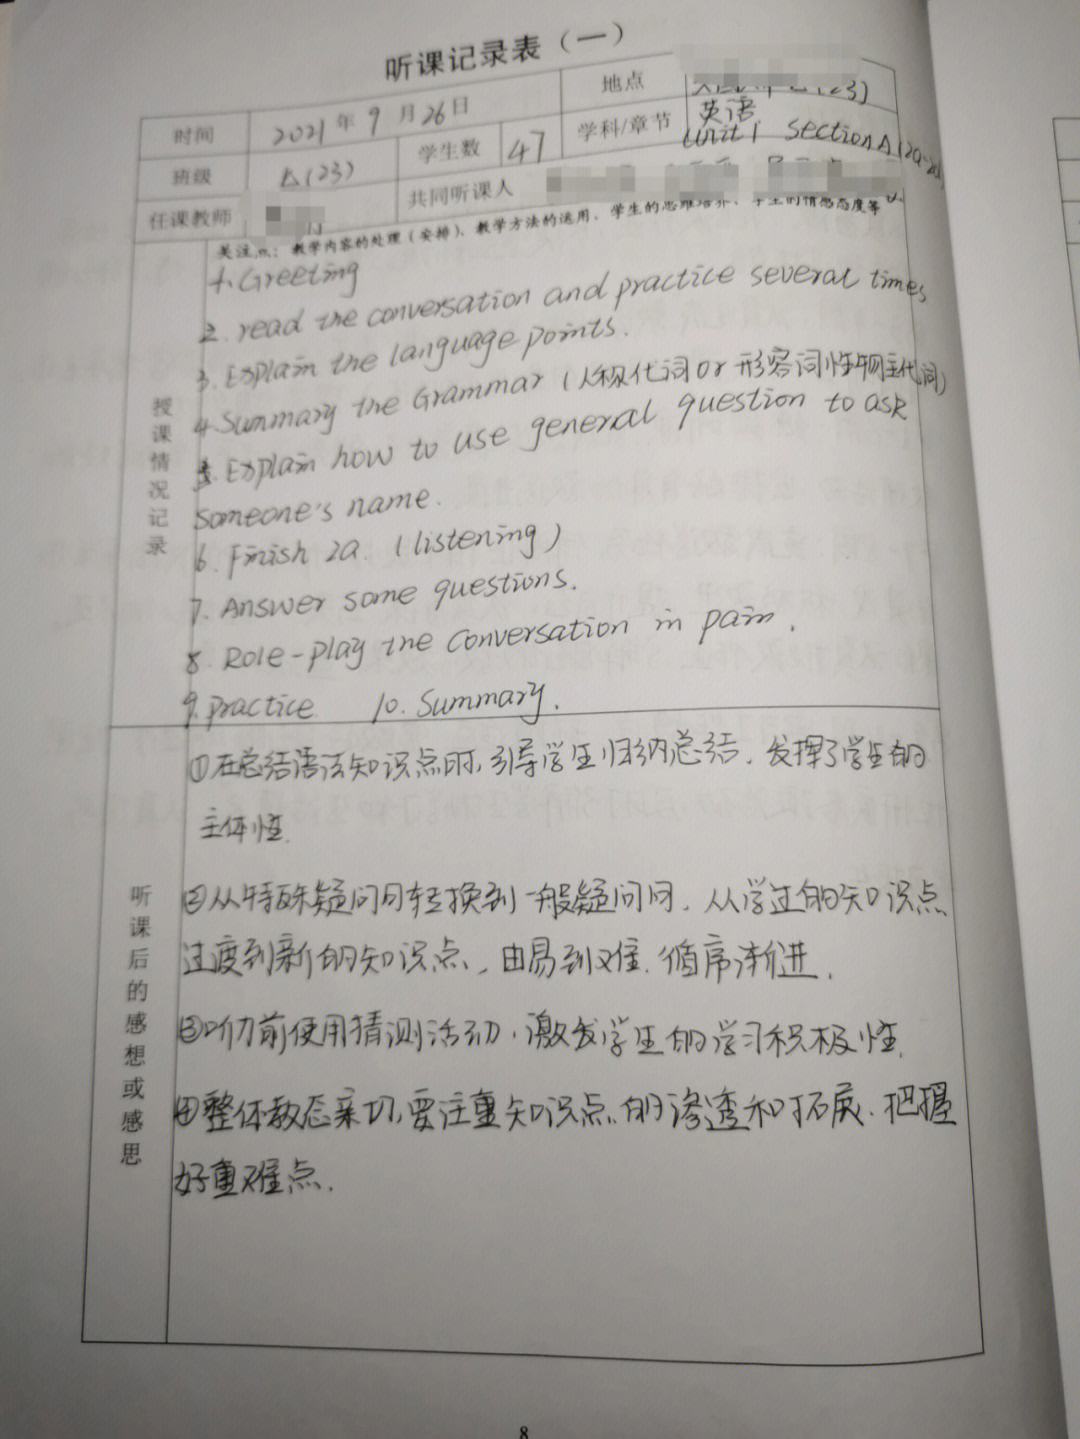 听课记录表（一）
时间 2021年9月26日 地点 (23)
班级 (23) 学生数 47 学科/章节 英语
Unit 1 Section A (2a-2d)
任课教师 共同听课人
关注点：教学内容的处理（安排）、教学方法的运用、学生的思维培养、学生的情感态度等
授课情况记录
1. Greeting
2. read the conversation and practice several times
3. Explain the language points.
4. Summary the Grammar (人称代词 or 形容词性物主代词)
5. Explain how to use general question to ask
someone's name.
6. Finish 2a. (listening)
7. Answer some questions.
8. Role-play the conversation in pair.
9. practice 10. Summary.
听课后的感想或感思
①在总结语法知识点时,引导学生归纳总结,发挥了学生的
主体性.
②从特殊疑问句转换到一般疑问句,从学过的知识点
过度到新的知识点,由易到难.循序渐进.
③听力前使用猜测活动,激发学生的学习积极性.
④整体教态亲切,要注重知识点的渗透和拓展.把握
好重难点.
8